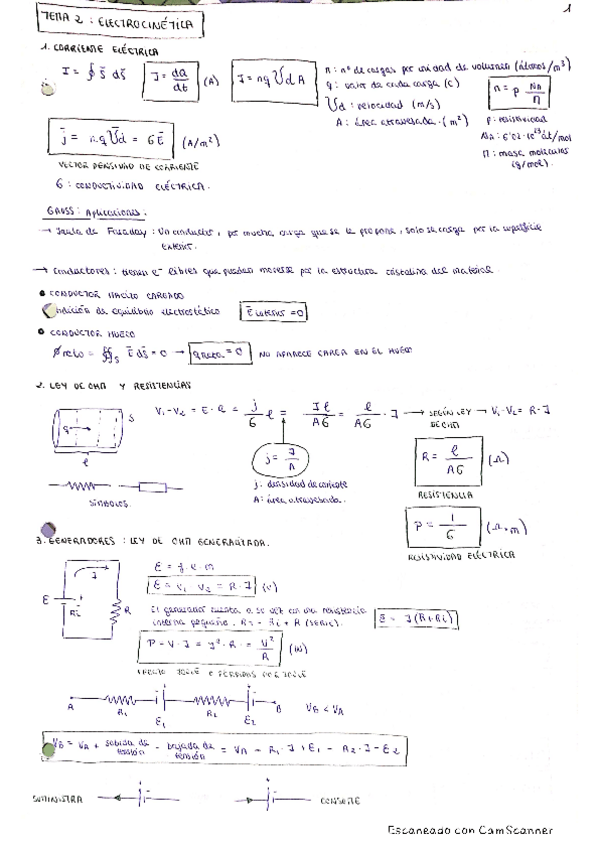 1
TEMA 2 : ELECTROCINÉTICA
1. CORRIENTE ELÉCTRICA
I = ∮ j⃗ ds⃗   I = dq/dt (A)   I = nqVd A
n : nº de cargas por unidad de volumen (átomos/m³)
q : valor de cada carga (C)
Vd : velocidad (m/s)
A : área atravesada (m²)
n = ρ NA/M
ρ : resistividad
NA : 6'02·10²³ át/mol
M : masa molecular (g/mol).
j⃗ = nqV⃗d = σE⃗ (A/m²)
VECTOR DENSIDAD DE CORRIENTE
σ : CONDUCTIVIDAD ELÉCTRICA.
GAUSS : Aplicaciones.
→ Jaula de Faraday : Un conductor, por mucha carga que se le propone, solo se carga por la superficie
exterior.
→ Conductores : tienen e⁻ libres que puedan moverse por la estructura cristalina del material.
• CONDUCTOR MACIZO CARGADO
Condición de equilibrio electrostático   E⃗ interno = 0
• CONDUCTOR HUECO
∅neto = ∯s E⃗ ds⃗ = 0 → qneta = 0 NO APARECE CARGA EN EL HUECO
2. LEY DE OHM Y RESISTENCIAS
S
V₁ - V₂ = E · l = j/σ l = Il/Aσ = l/Aσ · I → SEGÚN LEY DE OHM → V₁-V₂ = R · I
l
j = I/A
j : densidad de corriente
A : área atravesada.
R = l/Aσ (Ω)
RESISTENCIA
SÍMBOLOS.
ρ = 1/σ (Ω·m)
RESISTIVIDAD ELÉCTRICA
3. GENERADORES : LEY DE OHM GENERALIZADA.
I
E
Ri
R
E = f · e · m
E = V₁ V₂ = R · I (V)
El generador cuenta a su vez con una resistencia
interna pequeña. RT = Ri + R (SERIE).   E = I(R+Ri)
P = V · I = I² · R = V²/R (W)
EFECTO JOULE O PÉRDIDAS POR JOULE
A   R₁   E₁   R₂   E₂   B   VB < VA
VB = VA + subida de tensión - bajada de tensión = VA - R₁ · I + E₁ - R₂ · I - E₂
SUMINISTRA   CONSUME
Escaneado con CamScanner